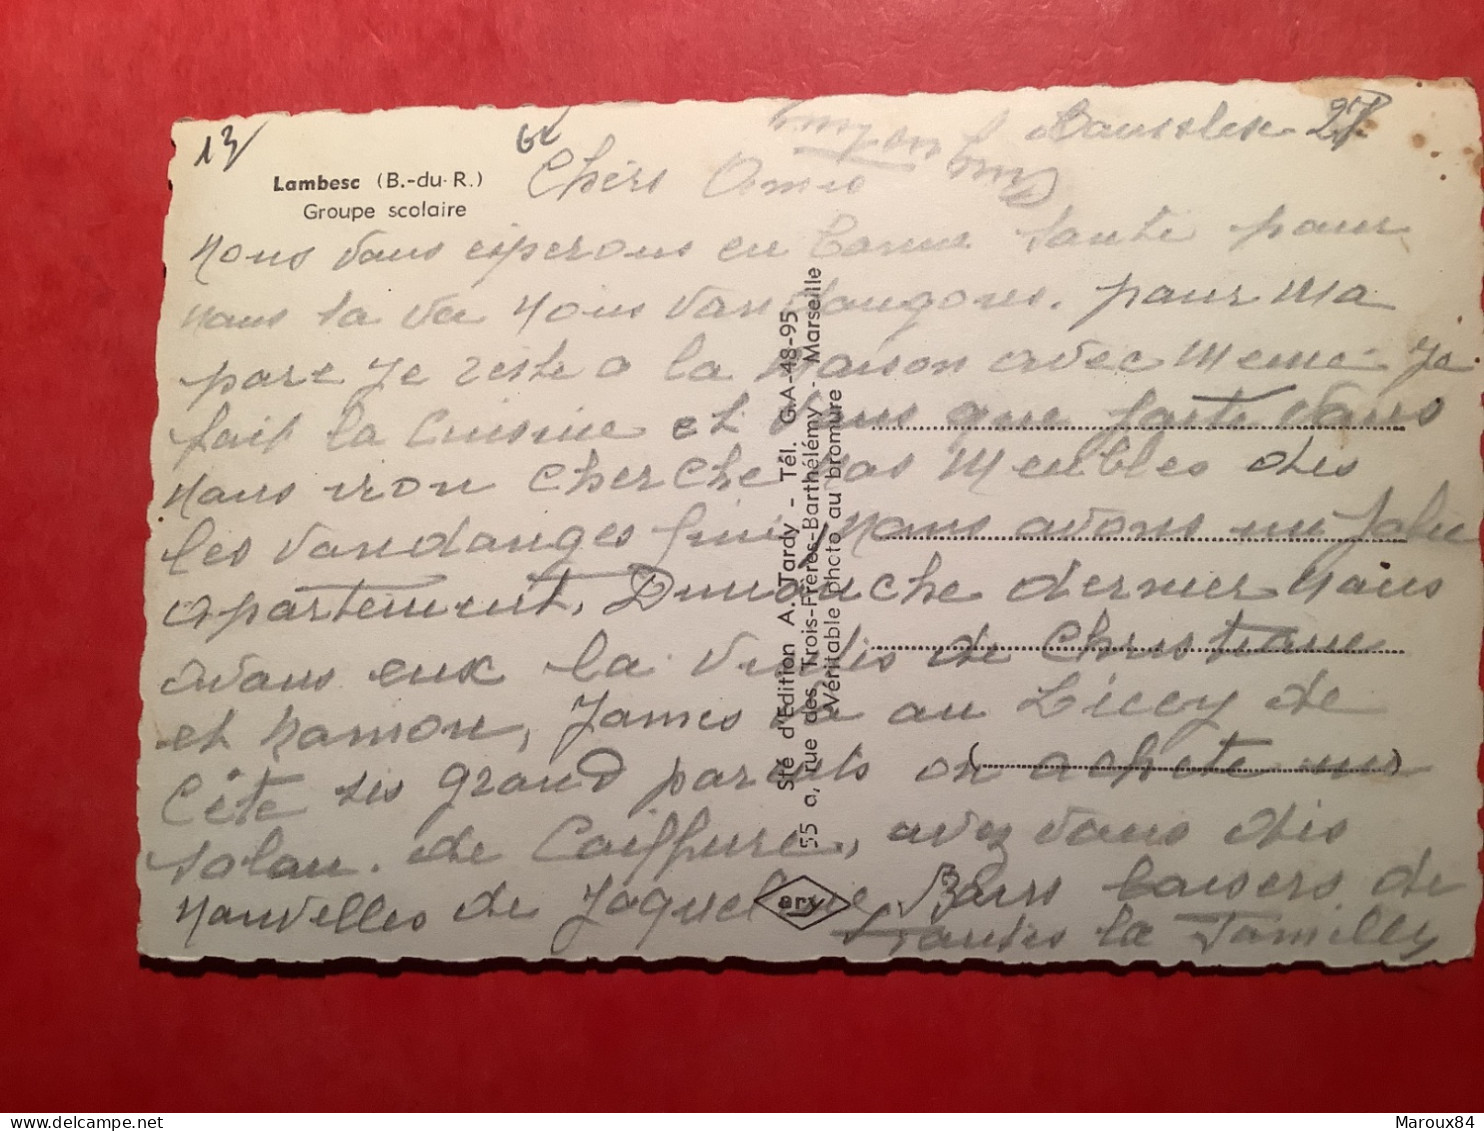 13
Lambesc (B.-du-R.)
Groupe scolaire
le 27
Chèrs Amis
nous vous esperons en bonne santé pour
nous sa va nous vandangons. pour ma
part je reste a la maison avec meme je
fait la cuisine et
nous iron cherche nos meubles des
les vandanges fini, nous avons un jolie
apartement, Dimanche dernier nous
avons eux la visite de Christiane
et Ramon, James va au Liccy de
Cète ses grand parents on achete un
salon. de Coiffure, avez vous des
nouvelles de Jaqueline, Bons baisers de
toutes la Familly
Sté d'Edition A. Tardy - Tél. GA-48-95
55 a, rue des Trois-Frères-Barthélémy - Marseille
Véritable photo au bromure
ary
Maroux84